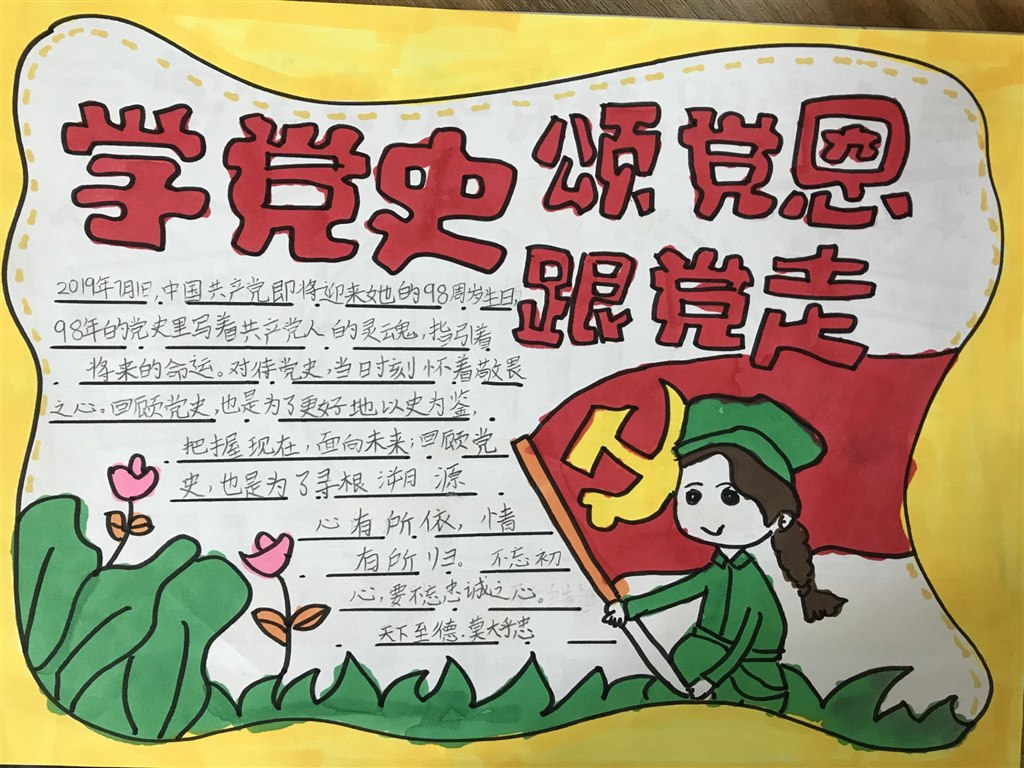 学党史 颂党恩
跟党走
2019年7月1日,中国共产党即将迎来她的98周岁生日,
98年的党史里写着共产党人的灵魂,指引着
将来的命运。对待党史,当时刻怀着敬畏
之心。回顾党史,也是为了更好地以史为鉴,
把握现在,面向未来;回顾党
史,也是为了寻根溯源
心有所依,情
有所归。不忘初
心,要不忘忠诚之心。
天下至德.莫大乎忠